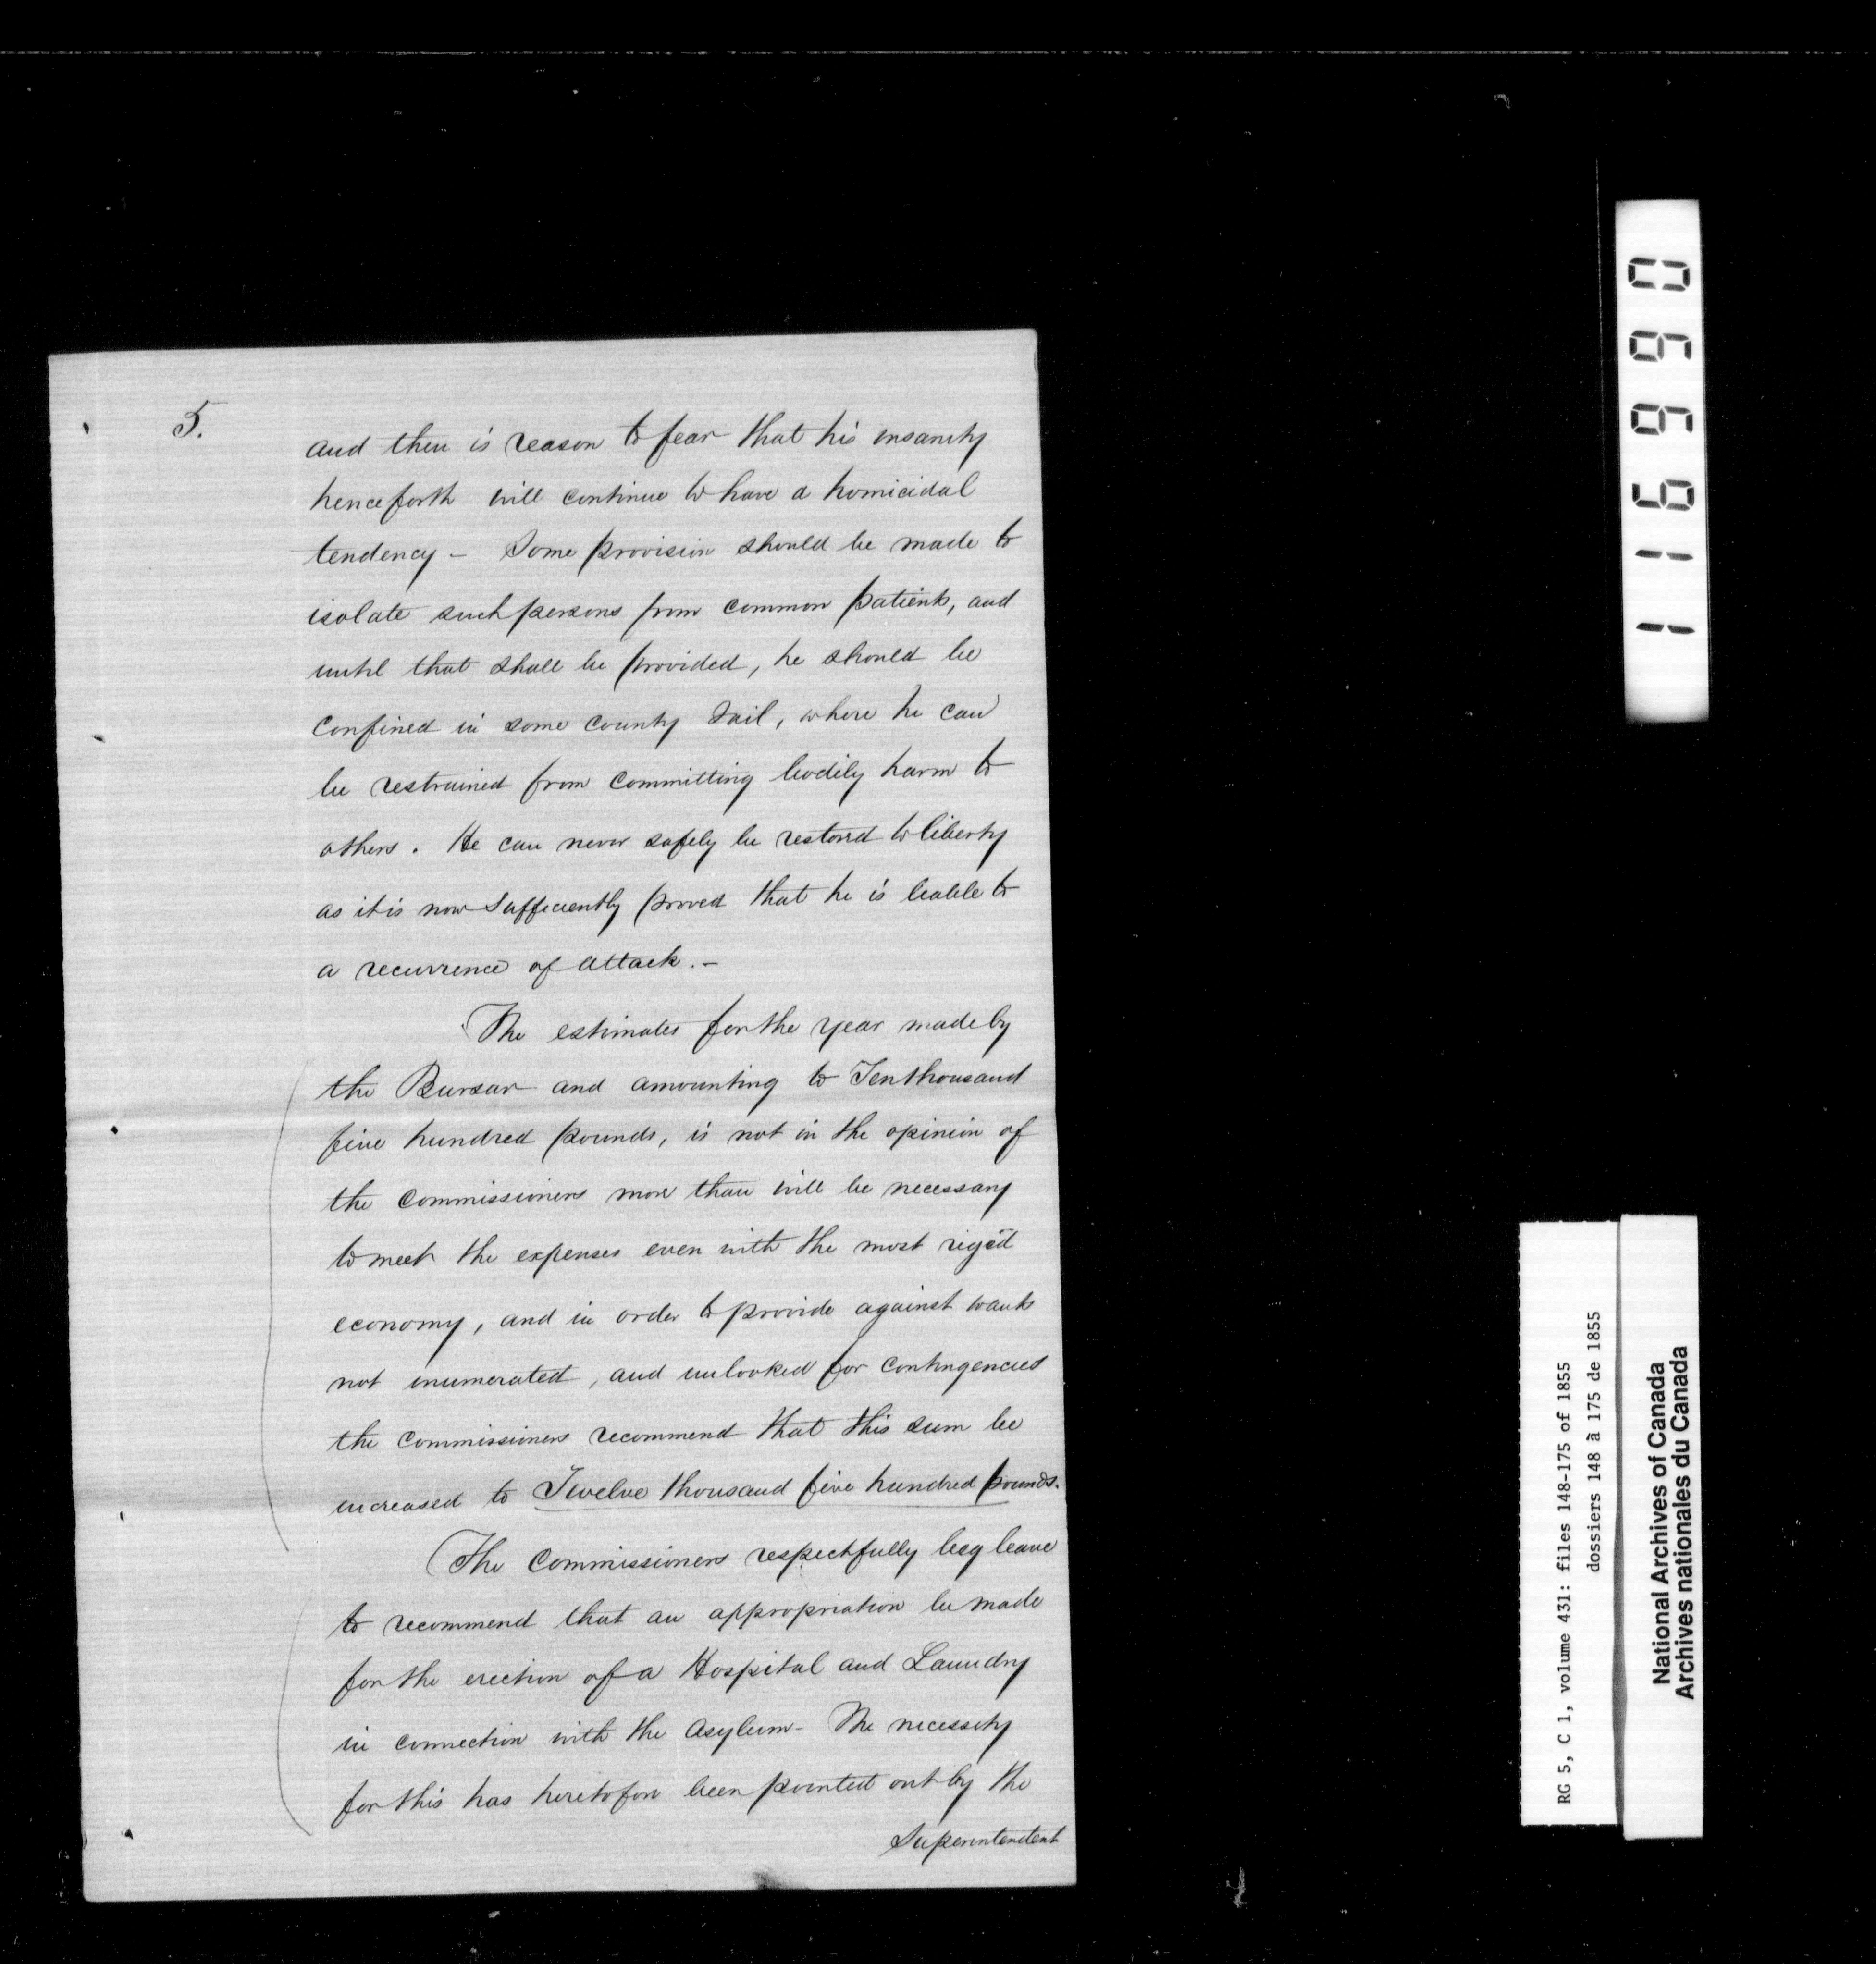 5.
and there is reason to fear that his insanity
henceforth will continue to have a homicidal
tendency - Some provision should be made to
isolate such persons from common patients, and
until that shall be provided, he should be
confined in some county Jail, where he can
be restrained from committing bodily harm to
others. He can never safely be restored to liberty
as it is now sufficiently proved that he is liable to
a recurrence of attack. -
The estimates for the year made by
the Bursar and amounting to Ten thousand
five hundred pounds, is not in the opinion of
the Commissioners more than will be necessary
to meet the expenses even with the most rigid
economy, and in order to provide against wants
not enumerated, and unlooked for contingencies
the commissioners recommend that this sum be
increased to Twelve thousand five hundred pounds.
The Commissioners respectfully beg leave
to recommend that an appropriation be made
for the erection of a Hospital and Laundry
in connection with the Asylum - The necessity
for this has heretofore been pointed out by the
Superintendent
116990
RG 5, C 1, volume 431: files 148-175 of 1855
dossiers 148 à 175 de 1855
National Archives of Canada
Archives nationales du Canada